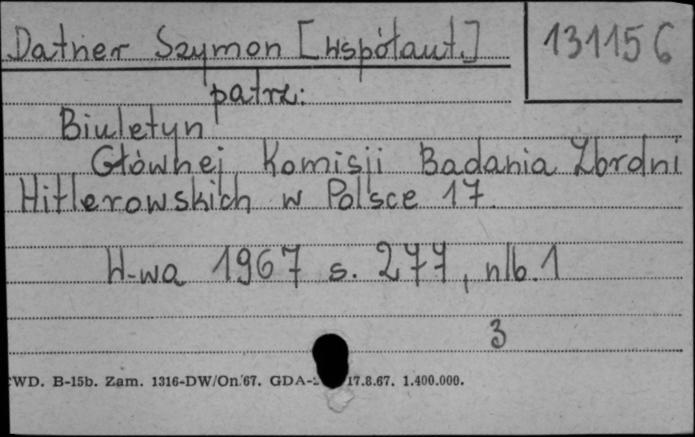 Datner Szymon [współaut.] 131156
patrz:
Biuletyn
Głównej Komisji Badania Zbrdni
Hitlerowskich w Polsce 17.
W-wa 1967 s. 277, nlb. 1
3
WD. B-15b. Zam. 1316-DW/On/67. GDA- 17.8.67. 1.400.000.